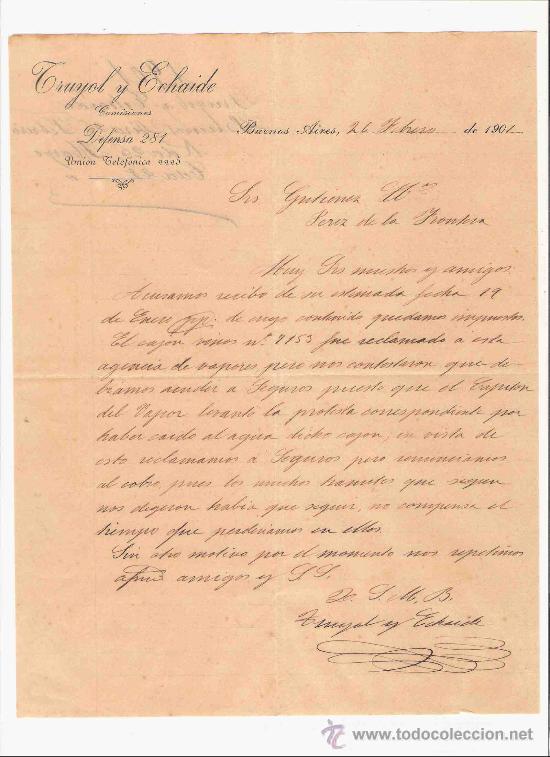 Truyol y Echaide
Comisiones
Defensa 281
Unión Telefónica 2225
Buenos Aires, 26 Febrero de 1901
Srs Gutierrez Hos
Jerez de la Frontera
Muy Srs nuestros y amigos
Acusamos recibo de su estimada fecha 19
de Enero ppº de cuyo contenido quedamos impuestos.
El cajón vinos nº 7153 fue reclamado a esta
agencia de vapores pero nos contestaron que de-
biamos acudir a Seguros puesto que el Capitan
del Vapor levantó la protesta correspondiente por
haber caido al agua dicho cajon; en vista de
esto reclamamos a Seguros pero renunciamos
al cobro, pues los muchos tramites que segun
nos digeron habia que seguir, no compensa el
tiempo que perderiamos en ellos.
Sin otro motivo por el momento nos repetimos
amigos y S.S.
Q. S. M. B.
Truyol y Echaide
www.todocoleccion.net